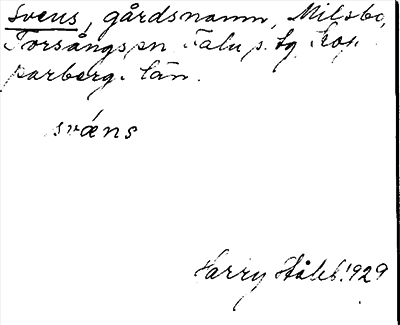 Svens, gårdsnamn, Milsbo,
Torsångs sn Falu s. tg Kop-
parberg. län.
svǽns
Harry Ståhl 1929